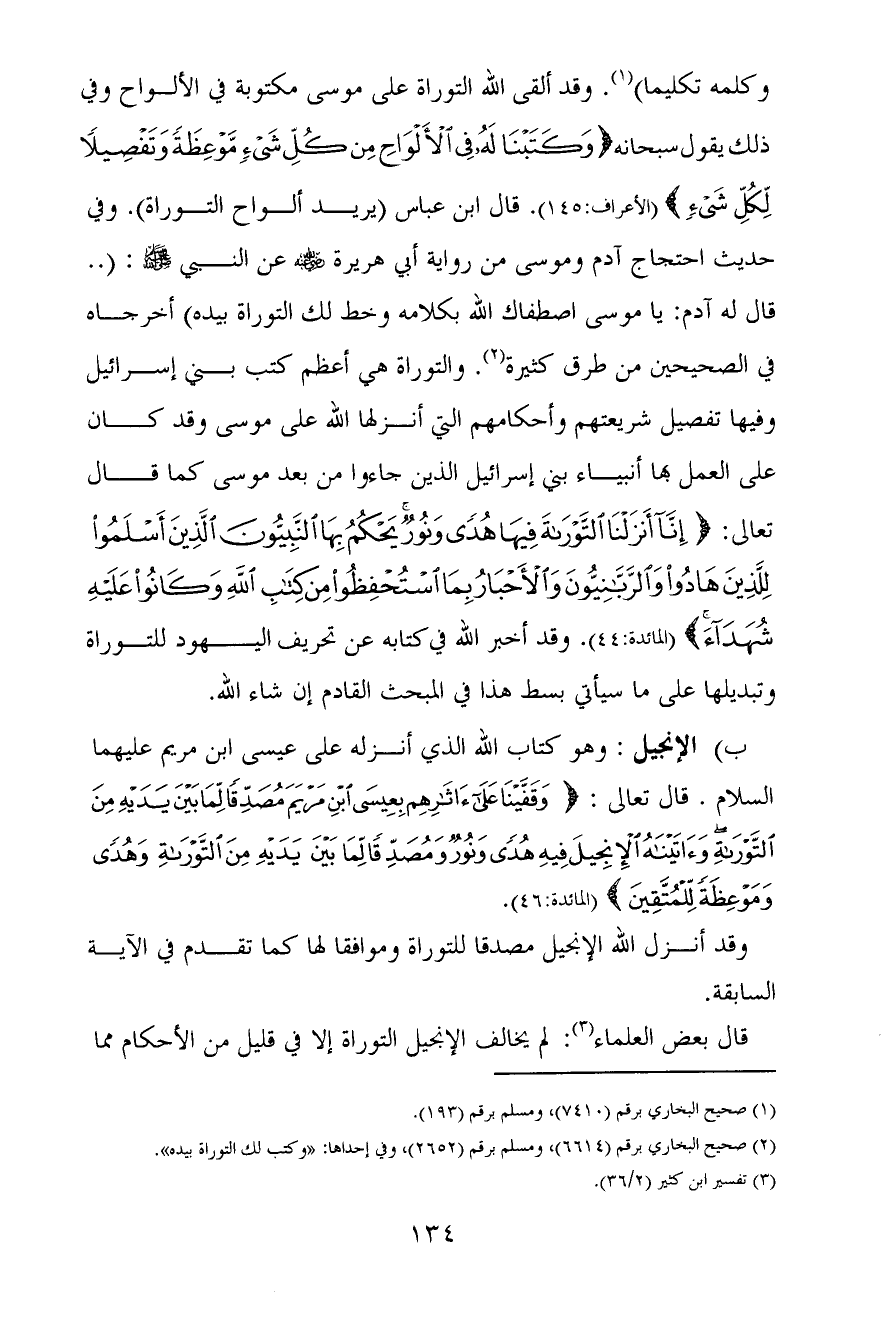 وكلمه تكليما)(١). وقد ألقى الله التوراة على موسى مكتوبة في الألـواح وفي
ذلك يقول سبحانه ﴿وَكَتَبْنَا لَهُۥ فِى ٱلْأَلْوَاحِ مِن كُلِّ شَىْءٍ مَّوْعِظَةً وَتَفْصِيلًا
لِّكُلِّ شَىْءٍ﴾ (الأعراف:١٤٥). قال ابن عباس (يريـد ألـواح التـوراة). وفي
حديث احتجاج آدم وموسى من رواية أبي هريرة ﷺ عن النـبي ﷺ : (..
قال له آدم: يا موسى اصطفاك الله بكلامه وخط لك التوراة بيده) أخرجـاه
في الصحيحين من طرق كثيرة(٢). والتوراة هي أعظم كتب بـني إسـرائيل
وفيها تفصيل شريعتهم وأحكامهم التي أنـزلها الله على موسى وقد كـان
على العمل بها أنبيـاء بني إسرائيل الذين جاءوا من بعد موسى كما قـال
تعالى: ﴿ إِنَّآ أَنزَلْنَا ٱلتَّوْرَىٰةَ فِيهَا هُدًى وَنُورٌ ۚ يَحْكُمُ بِهَا ٱلنَّبِيُّونَ ٱلَّذِينَ أَسْلَمُوا۟
لِلَّذِينَ هَادُوا۟ وَٱلرَّبَّـٰنِيُّونَ وَٱلْأَحْبَارُ بِمَا ٱسْتُحْفِظُوا۟ مِن كِتَـٰبِ ٱللَّهِ وَكَانُوا۟ عَلَيْهِ
شُهَدَآءَ ۚ﴾ (المائدة:٤٤). وقد أخبر الله في كتابه عن تحريف اليـهود للتـوراة
وتبديلها على ما سيأتي بسط هذا في المبحث القادم إن شاء الله.
ب) الإنجيل : وهو كتاب الله الذي أنـزله على عيسى ابن مريم عليهما
السلام . قال تعالى : ﴿ وَقَفَّيْنَا عَلَىٰٓ ءَاثَـٰرِهِم بِعِيسَى ٱبْنِ مَرْيَمَ مُصَدِّقًا لِّمَا بَيْنَ يَدَيْهِ مِنَ
ٱلتَّوْرَىٰةِ ۖ وَءَاتَيْنَـٰهُ ٱلْإِنجِيلَ فِيهِ هُدًى وَنُورٌ وَمُصَدِّقًا لِّمَا بَيْنَ يَدَيْهِ مِنَ ٱلتَّوْرَىٰةِ وَهُدًى
وَمَوْعِظَةً لِّلْمُتَّقِينَ ﴾ (المائدة:٤٦).
وقد أنـزل الله الإنجيل مصدقا للتوراة وموافقا لها كما تقـدم في الآيـة
السابقة.
قال بعض العلماء(٣): لم يخالف الإنجيل التوراة إلا في قليل من الأحكام مما
(١) صحيح البخاري برقم (٧٤١٠)، ومسلم برقم (١٩٣).
(٢) صحيح البخاري برقم (٦٦١٤)، ومسلم برقم (٢٦٥٢)، وفي إحداها: «وكتب لك التوراة بيده».
(٣) تفسير ابن كثير (٣٦/٢).
١٣٤